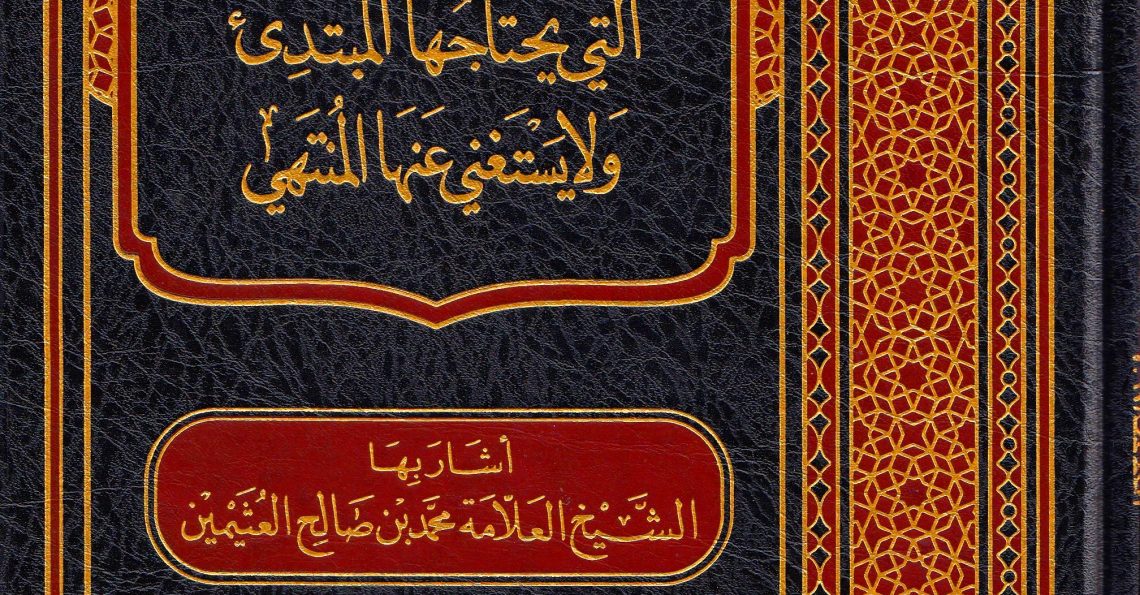 التي يحتاجها المبتدِئ
وَلا يَسْتَغني عَنهَا المُنتَهَي
أشَارَ بِهَا
الشَّيْخ العَلّامَة محمّد بْن صَالِح العُثَيْمِين